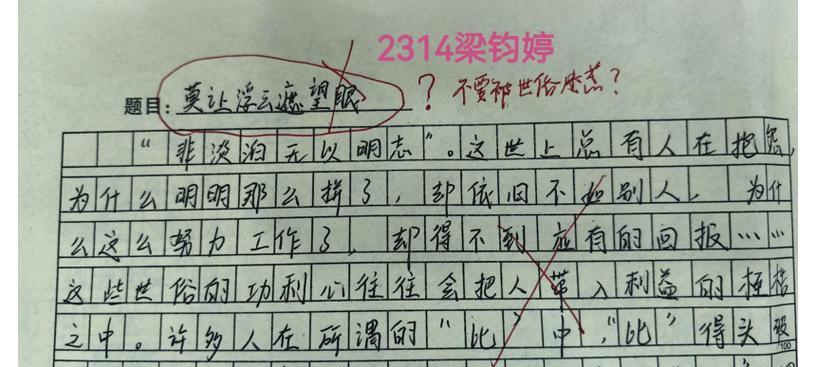 2314梁钧婷
题目：莫让浮云遮望眼
？不要被世俗迷惑？
“非淡泊无以明志”。这世上总有人在抱怨，
为什么明明那么拼了，却依旧不如别人，为什
么这么努力工作了，却得不到应有的回报……
这些世俗的功利心往往会把人带入利益的桎梏
之中。许多人在所谓的“比”中，“比”得头破
100